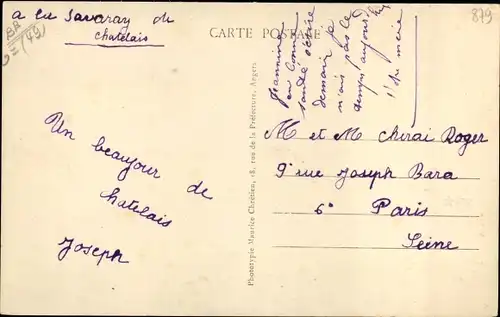 a la Savaray de
chatelais
(49)
CARTE POSTALE
879
Jeannine
en bonne
santé
demain je
n'ais pas le
temps aujourd
Un beaujour
de
chatelais
Joseph
Phototypie Maurice Chrétien, 18, rue de la Préfecture, Angers
M et M Chirai Roger
9 rue Joseph Bara
6e Paris
Seine